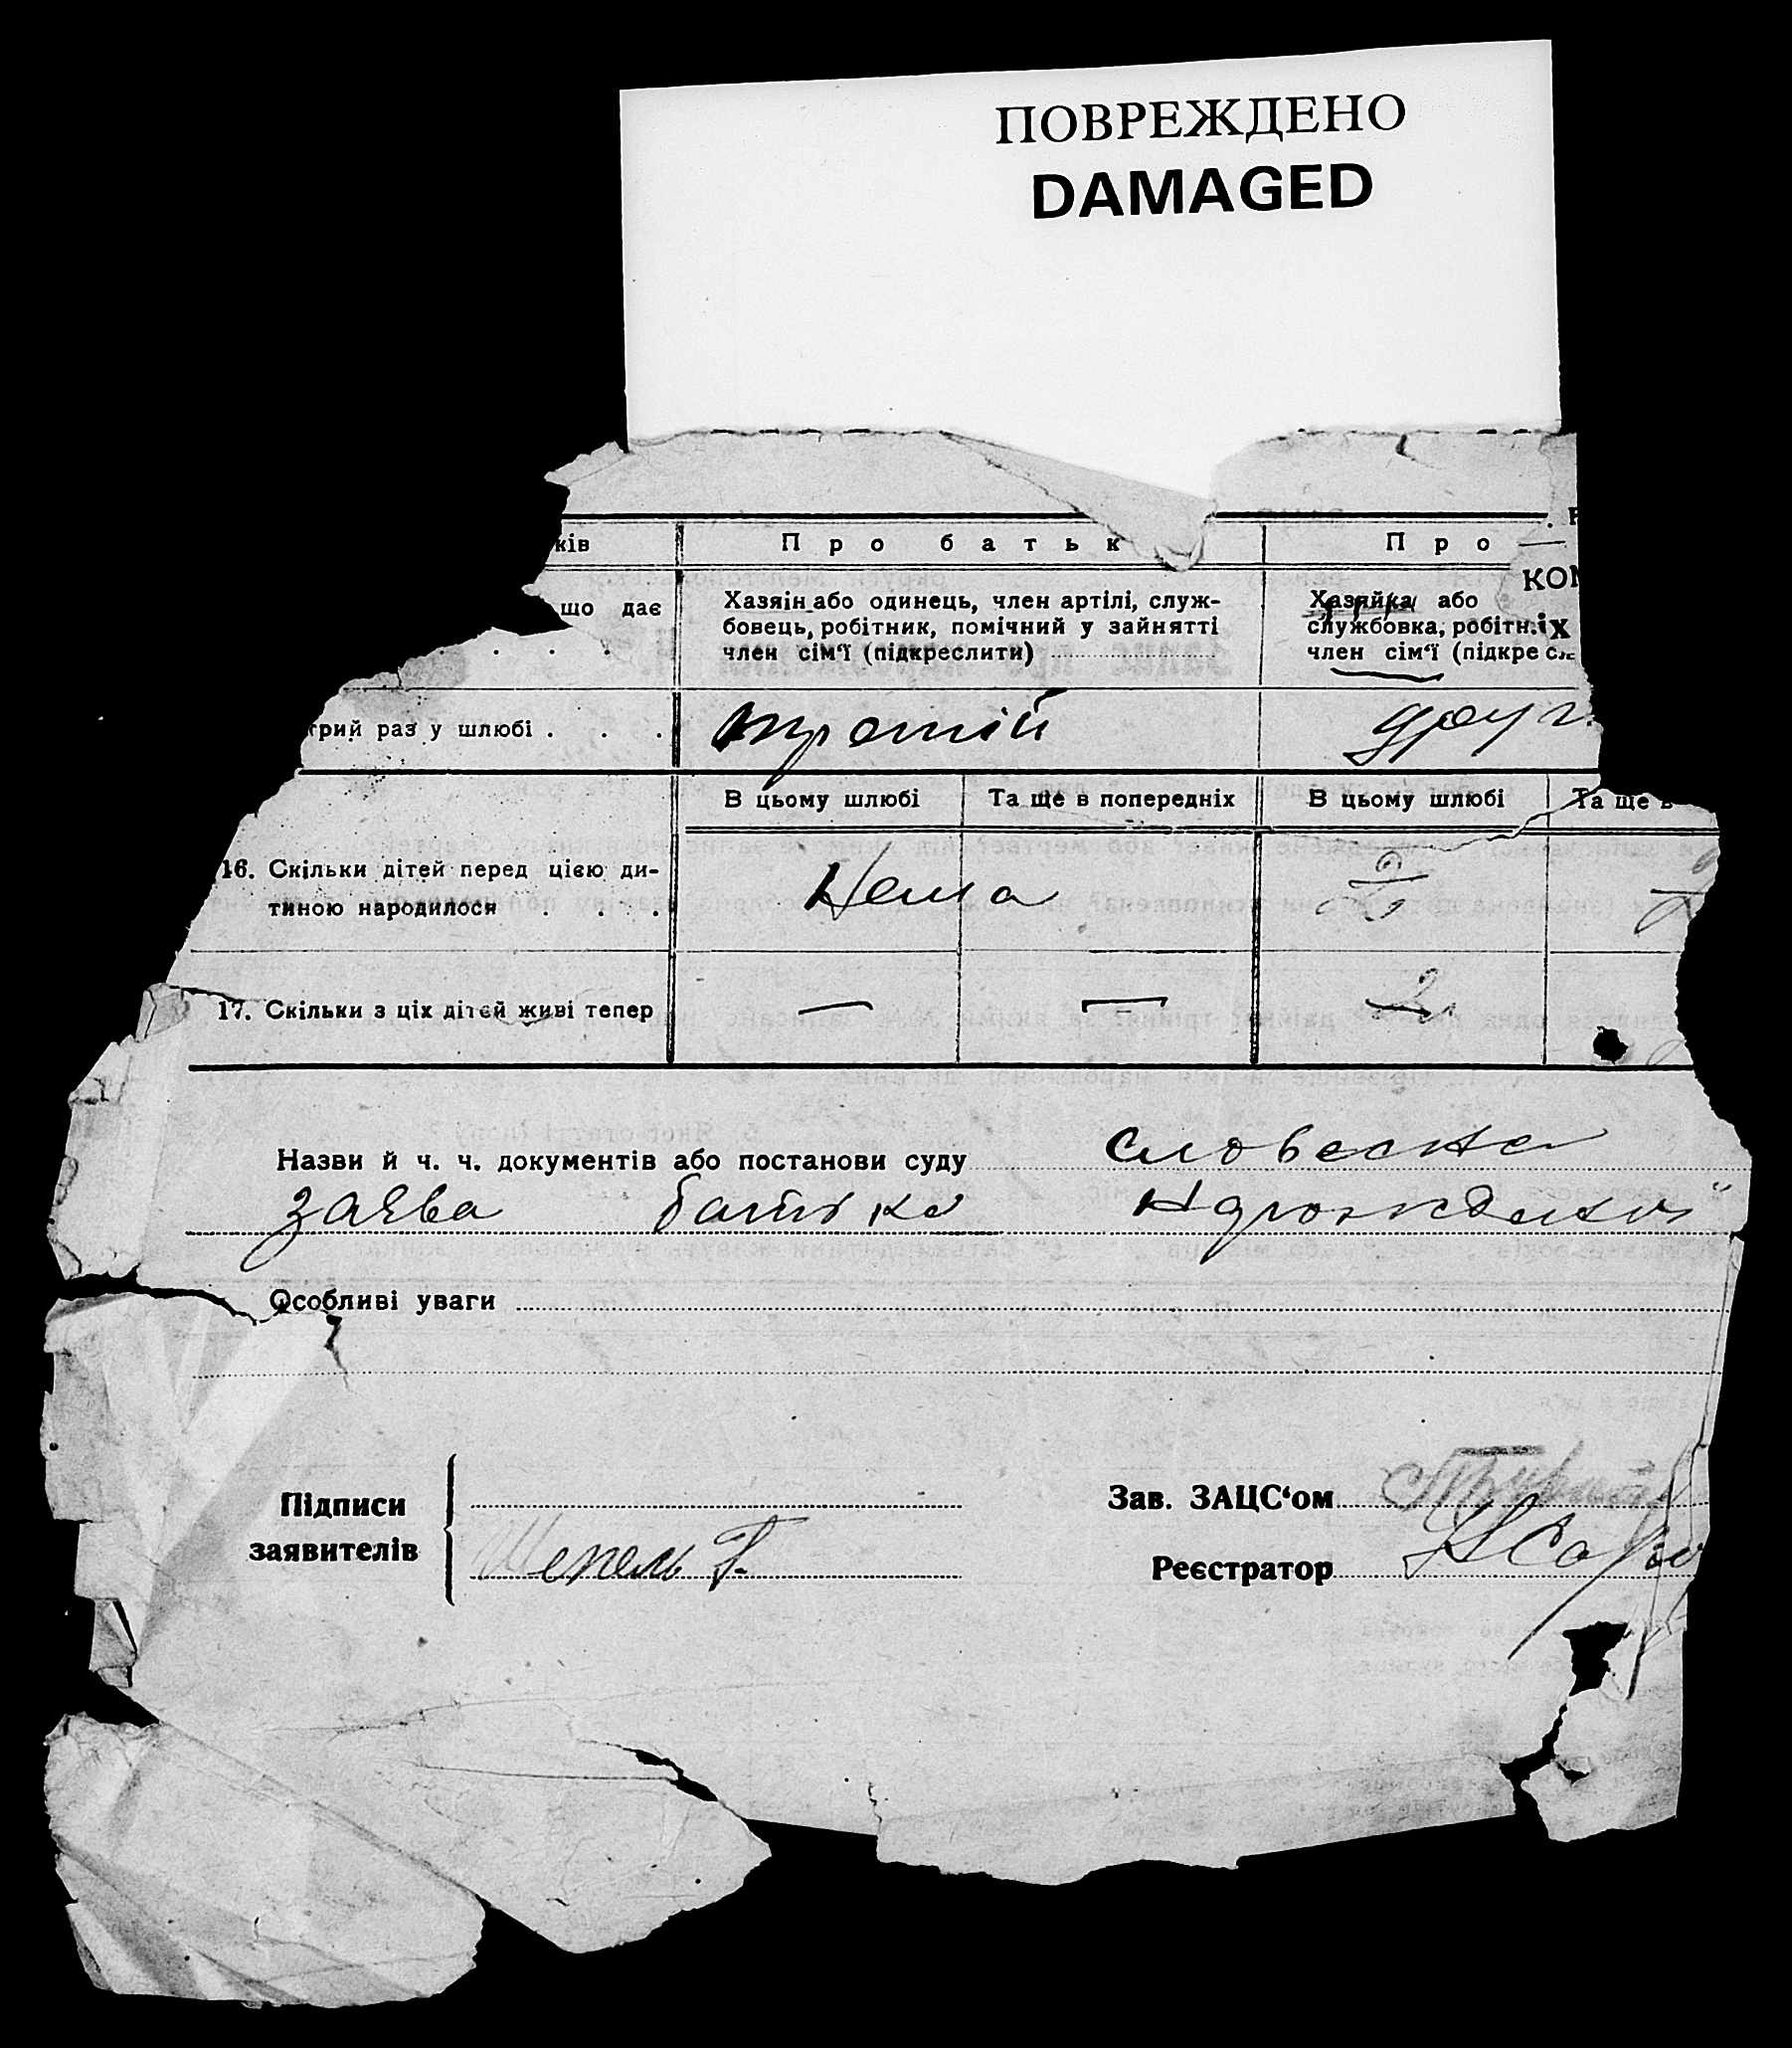 ПОВРЕЖДЕНО
DAMAGED
ків
Про батьк
Про
КОМ
що дає
Хазяїн або одинець, член артілі, служ-
бовець, робітник, помічний у зайнятті
член сім‘ї (підкреслити)
Хазяйка або
службовка, робітн.
іх
член сім‘ї (підкресл
трий раз у шлюбі . . .
третій
друг
В цьому шлюбі
Та ще в попередніх
В цьому шлюбі
Та ще в
16. Скільки дітей перед цією ди-
тиною народилося . . .
Нема
17. Скільки з ціх дітей живі тепер
—
—
2
Назви й ч. ч. документів або постанови суду словесна
заява батька
Особливі уваги
Підписи
заявителів
Шепель Г.
Зав. ЗАЦС‘ом
Реєстратор